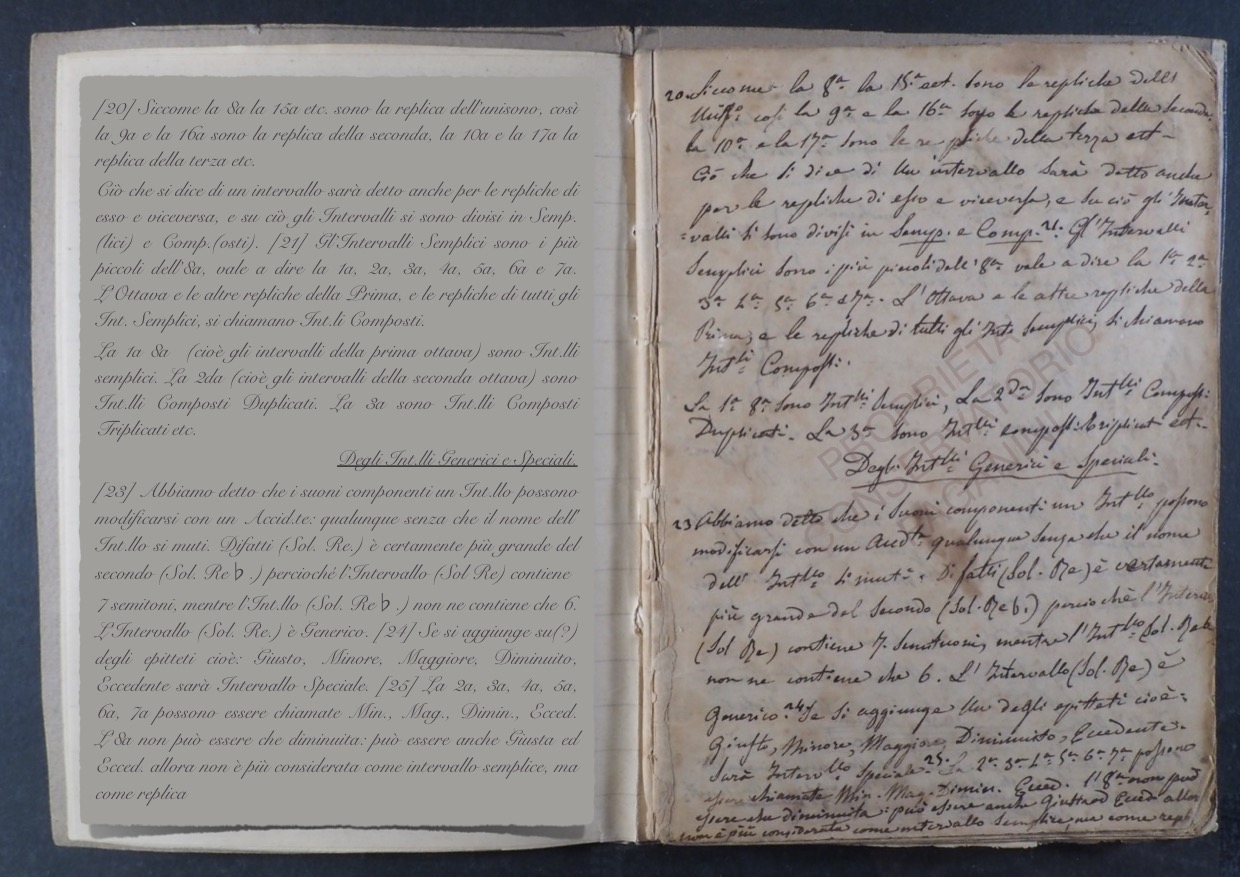 [20] Siccome la 8a la 15a etc. sono la replica dell'unisono, così
la 9a e la 16a sono la replica della seconda, la 10a e la 17a la
replica della terza etc.
Ciò che si dice di un intervallo sarà detto anche per le repliche di
esso e viceversa, e su ciò gli Intervalli si sono divisi in Semp.
(lici) e Comp.(osti). [21] Gl'Intervalli Semplici sono i più
piccoli dell'8a, vale a dire la 1a, 2a, 3a, 4a, 5a, 6a e 7a.
L'Ottava e le altre repliche della Prima, e le repliche di tutti gli
Int. Semplici, si chiamano Int.li Composti.
La 1a 8a (cioè gli intervalli della prima ottava) sono Int.lli
semplici. La 2da (cioè gli intervalli della seconda ottava) sono
Int.lli Composti Duplicati. La 3a sono Int.lli Composti
Triplicati etc.
Degli Int.lli Generici e Speciali.
[23] Abbiamo detto che i suoni componenti un Int.llo possono
modificarsi con un Accid.te: qualunque senza che il nome dell'
Int.llo si muti. Difatti (Sol. Re.) è certamente più grande del
secondo (Sol. Re♭.) perciochè l'Intervallo (Sol Re) contiene
7 semitoni, mentre l'Int.llo (Sol. Re♭.) non ne contiene che 6.
L'Intervallo (Sol. Re.) è Generico. [24] Se si aggiunge su(?)
degli epitteti cioè: Giusto, Minore, Maggiore, Diminuito,
Eccedente sarà Intervallo Speciale. [25] La 2a, 3a, 4a, 5a,
6a, 7a possono essere chiamate Min., Mag., Dimin., Ecced.
L'8a non può essere che diminuita: può essere anche Giusta ed
Ecced. allora non è più considerata come intervallo semplice, ma
come replica
20. Siccome la 8a la 15a ect. sono le repliche dell'
così la 9a e la 16a sono le repliche della seconda,
la 10a e la 17a sono le repliche della terza ect
Ciò che si dice di un intervallo sarà detto anche
per le repliche di esso e viceversa, e su ciò gl'Inter
=valli si sono divisi in Semp. e Comp. 21. Gl'Intervalli
Semplici sono i più piccoli dell'8a vale a dire la 1a 2a
3a 4a 5a 6a e 7a. L'Ottava e le altre repliche della
Prima, e le repliche di tutti gli Inti Semplici, si chiamano
Intli Composti.
La 1a 8a sono Intlli Semplici, La 2da sono Intlli Composti
Duplicati. La 3a sono Intlli composti triplicati ect.
Degl'Intlli Generici e Speciali.
23 Abbiamo detto che i suoni componenti un Intllo possono
modificarsi con un Accdte qualunque senza che il nome
dell' Intllo si muti. Difatti (Sol. Re) è certamente
più grande del secondo (Sol. Re♭.) perciochè l'Interv
(Sol Re) contiene 7. semituoni, mentre l'Intllo (Sol. Re♭
non ne contiene che 6. L'Intervallo (Sol. Re) è
Generico. 24 Se si aggiunge un degli epitteti cioè:
Giusto, Minore, Maggiore, Diminuito, Eccedente.
Sarà Intervllo Speciale. 25. La 2a 3a 4a 5a 6a 7a possono
essere chiamate Min. Mag. Dimin. Eced. l'8a non può
essere che diminuita: può essere anche Giusta ed Ecced allor
non è più considerata come intervallo semplice, ma come repl
PROPRIETÀ
CONSERVATORIO
PAGANINI